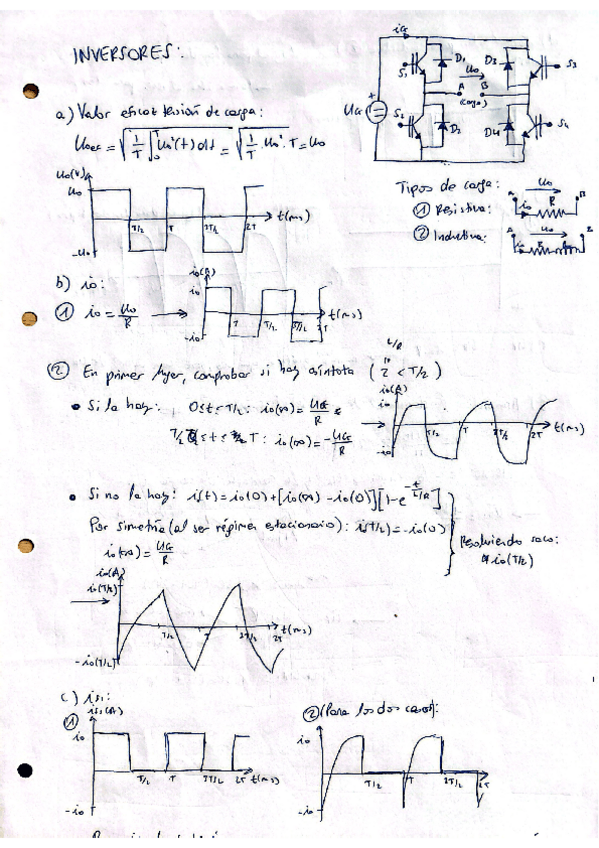 INVERSORES:
iG
S1 D1 uo D3 S3
A B
(carga)
UG
S2 D2 D4 S4
a) Valor eficaz tensión de carga:
Uoef = √(1/T ∫₀ᵀ uo²(t) dt) = √(1/T · uo² · T) = uo
uo(V)
uo
-uo
T/2 T 3T/2 2T t(ms)
Tipos de carga:
① Resistiva: A uo B io R
② Inductiva: A uo B R
b) io:
① io = uo/R → io(A)
io
-io
T T/2 2T t(ms)
② En primer lugar, comprobar si hay asíntota ( < T/2)
L/R
• Si la hay: 0≤t≤T/2: io(∞) = UG/R
T/2 ≤ t ≤ T: io(∞) = -UG/R
io(A)
io
-io
T/2 T 3T/2 2T t(ms)
• Si no la hay: i(t) = io(0) + [io(∞) - io(0)][1-e^(-t/(L/R))]
Por simetría (al ser régimen estacionario): i(T/2) = -io(0)
io(∞) = UG/R
Resolviendo saco:
io(T/2)
io(A)
io(T/2)
-io(T/2)
T/2 T 3T/2 2T t(ms)
c) is1:
① is1(A)
io
-io
T/2 T 3T/2 2T t(ms)
② (Para los dos casos):
io
-io
T/2 T 3T/2 2T